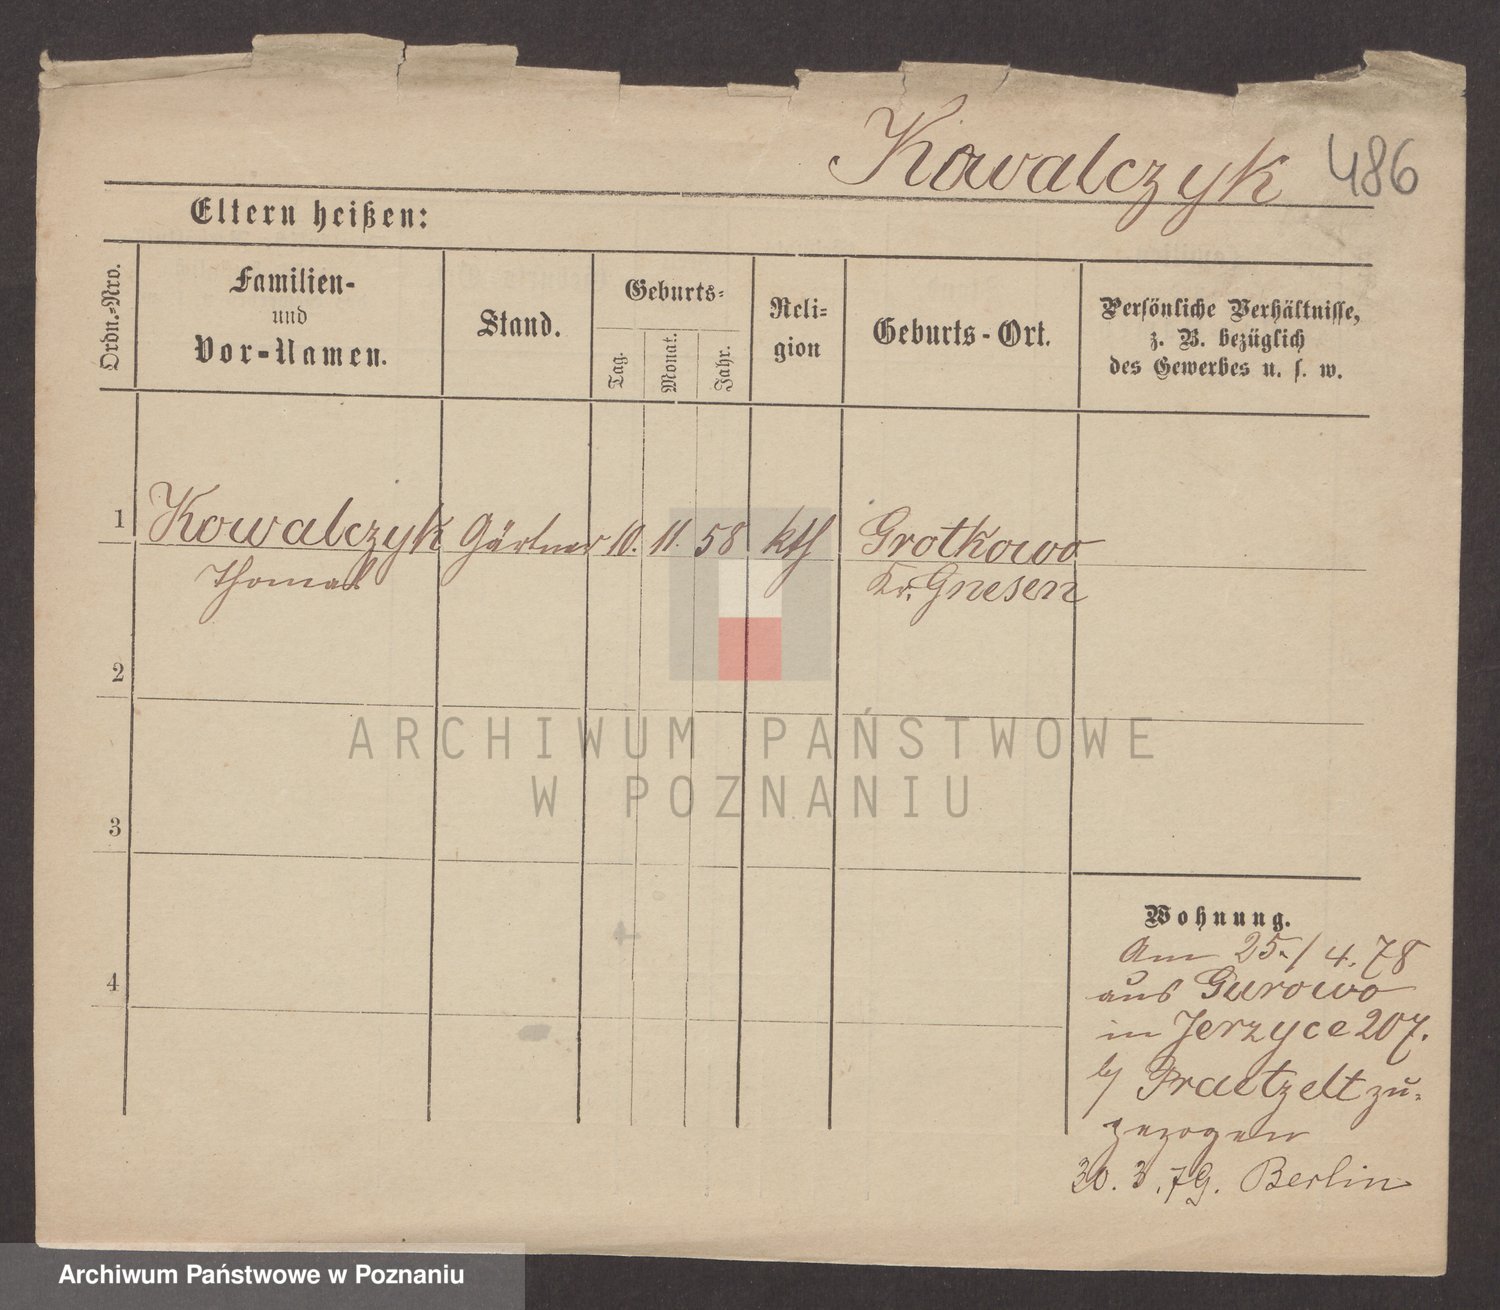 Kowalczyk 486
Eltern heißen:
Ordn.-Nro.
Familien-
und
Vor-Namen.
Stand.
Geburts-
Tag.
Monat.
Jahr.
Reli-
gion
Geburts-Ort.
Persönliche Verhältnisse,
z. B. bezüglich
des Gewerbes u. s. w.
1 Kowalczyk Gärtner 10. 11. 58 kth Grotkowo
Thomas Kr. Gnesen
2
3
4
Wohnung.
Am 25./4.78
aus Gurowo
in Jerzyce 207.
b/ Praetzelt zu-
gezogen
30.3.79. Berlin
ARCHIWUM PAŃSTWOWE
W POZNANIU
Archiwum Państwowe w Poznaniu